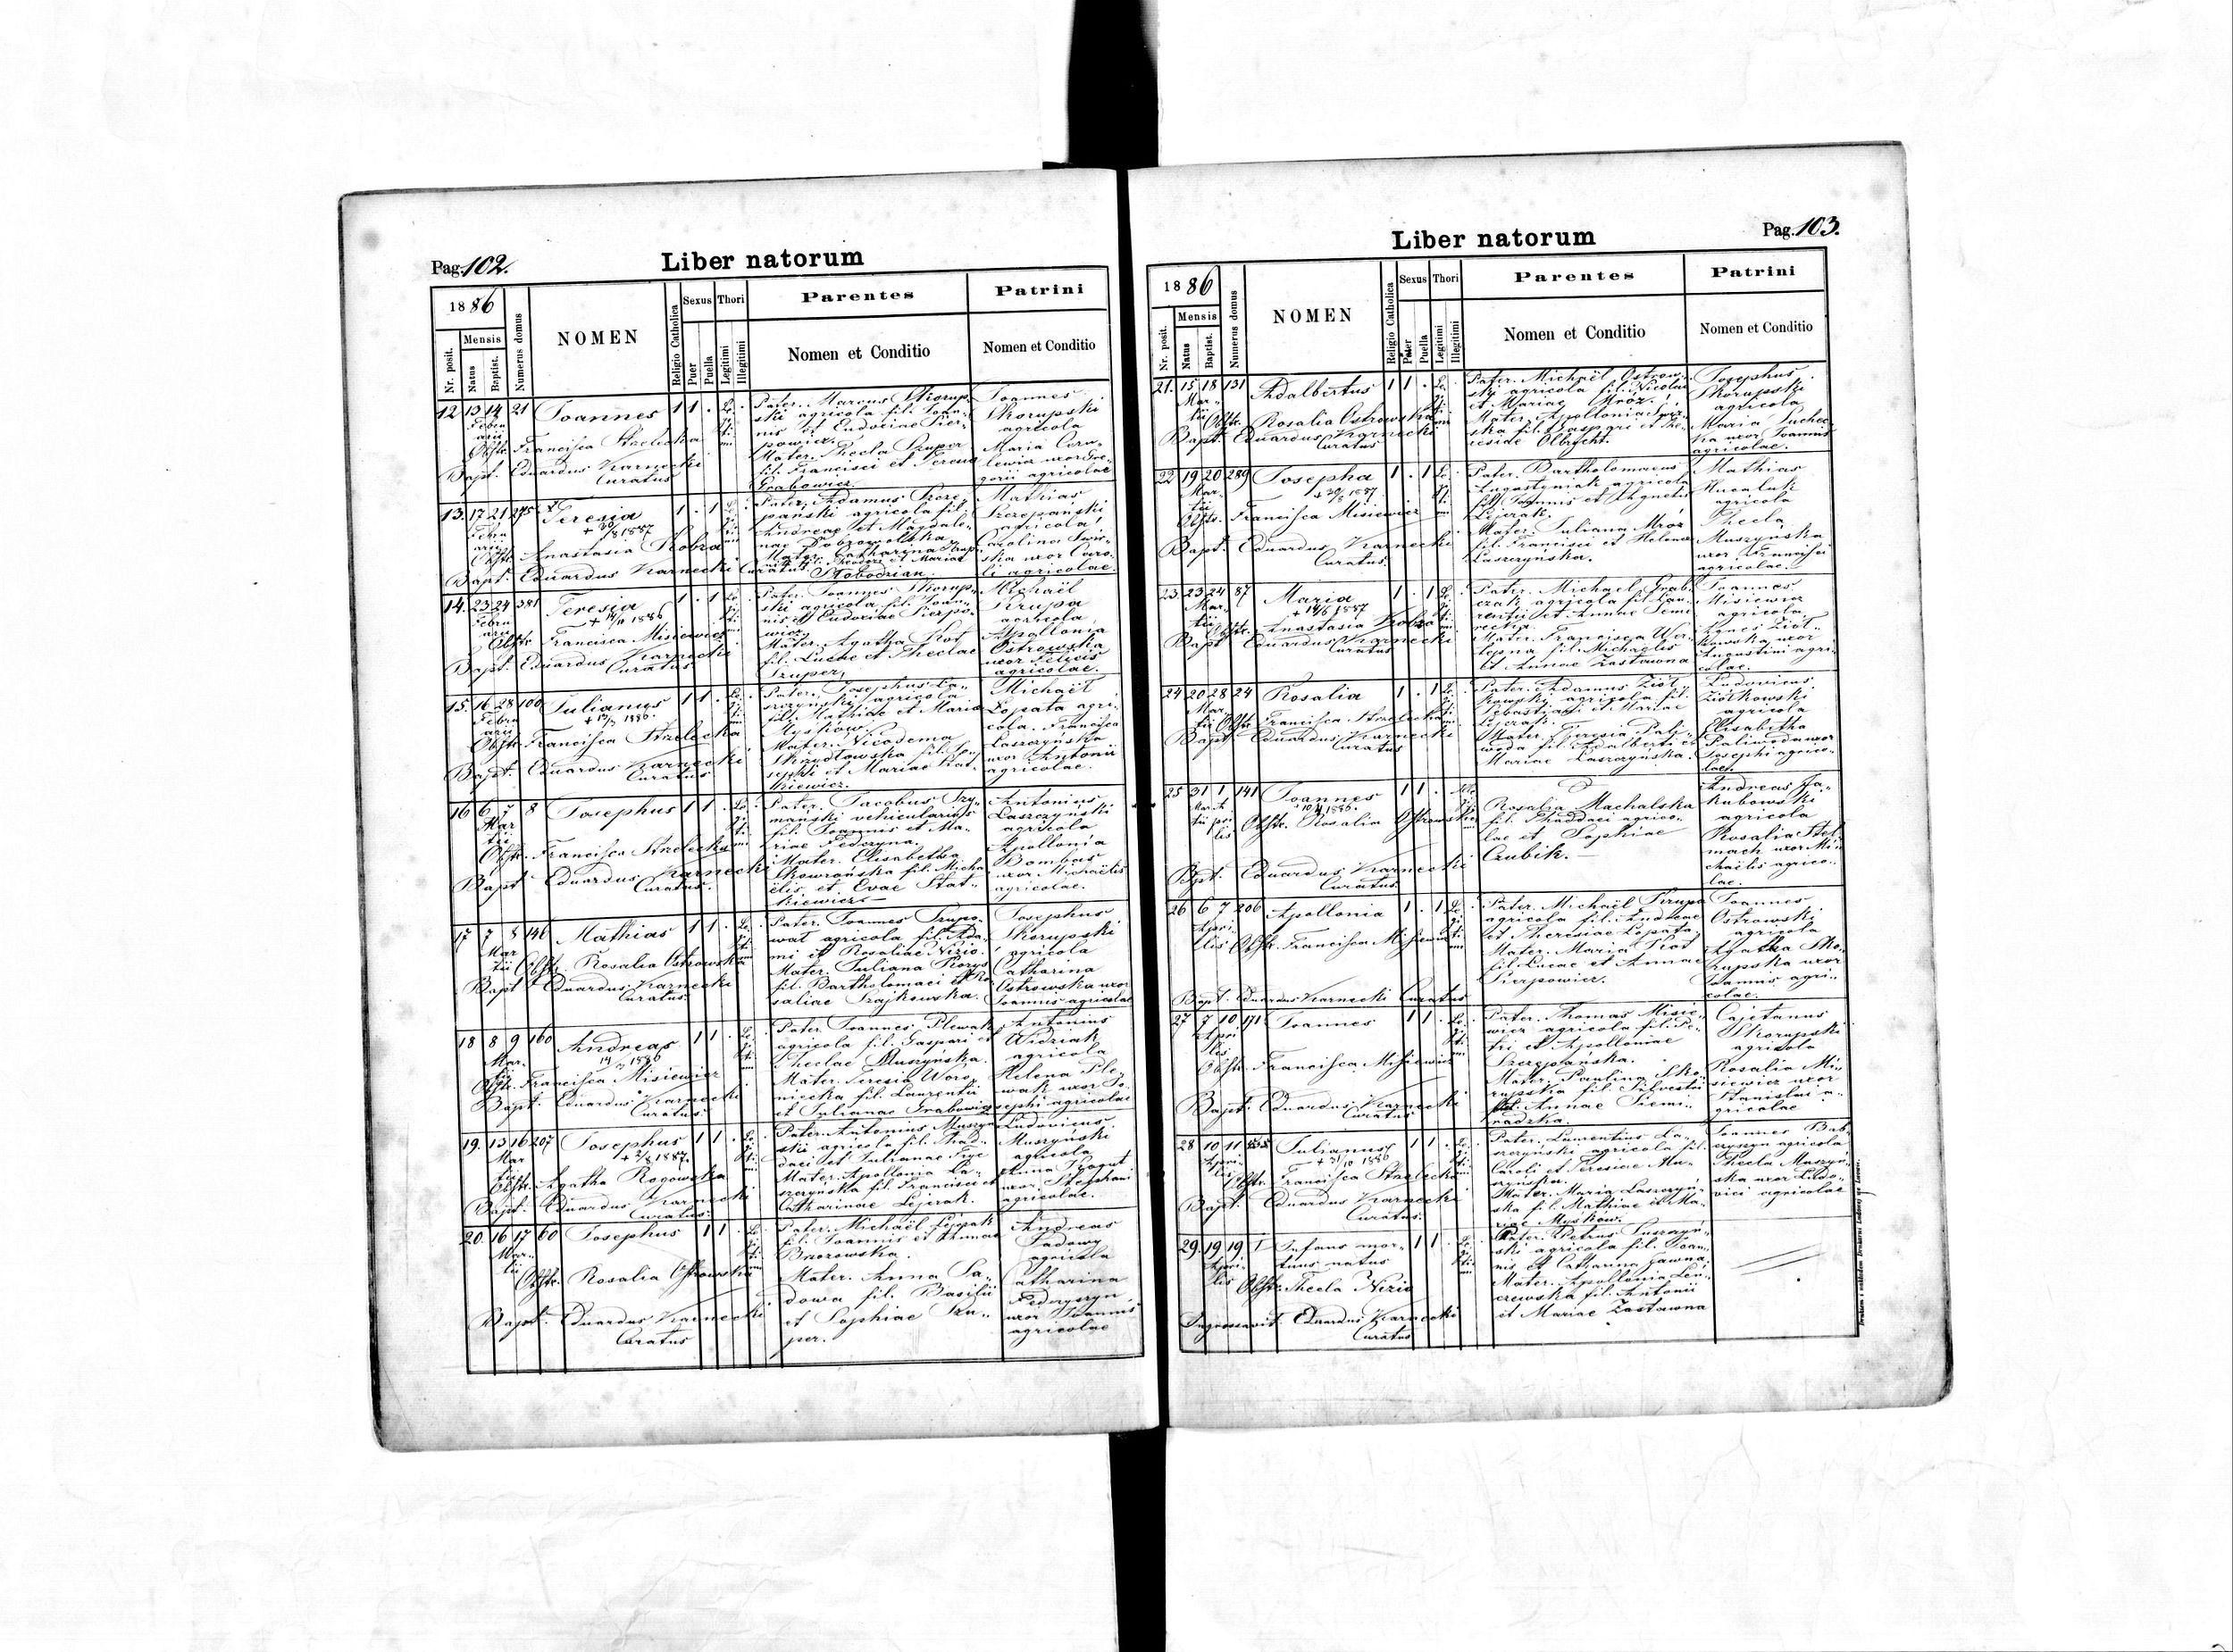 Pag. 102.
Liber natorum
1886
Nr. posit.
Mensis
Natus
Baptist.
Numerus domus
NOMEN
Religio Catholica
Sexus
Puer
Puella
Thori
Legitimi
Illegitimi
Parentes
Nomen et Conditio
Patrini
Nomen et Conditio
12 13 14 21 Joannes 1 1 .
Febru
arii
Obstr. Francisca Strzelecka
Bapt. Eduardus Karnecki
Curatus
Pater. Marcus Skorup-
ski agricola fil. Joan-
nis et Eudociae Sier-
powicz.
Mater. Thecla Szuper
fil. Francisci et Teresiae
Grabowicz.
Joannes
Skorupski
agricola
Maria
uxor Gre-
gorii agricolae
13. 17 21 275 Teresia 1 . 1
Febru
arii
Obstr. Anastasia Kobza
Bapt. Eduardus Karnecki Curatus
Pater. Adamus Szcze-
pański agricola fil.
Andreae et Magdale-
nae Dobrowolska
Mater. Catharina
fil. Theodori et Mariae
Słobodzian.
Mathias
Szczepański
agricola
Carolina
uxor Caro-
li agricolae.
14. 23 24 381 Teresia 1 . 1
Febru
arii
Obstr. Francisca Misiewicz
Bapt. Eduardus Karnecki
Curatus
Pater. Joannes Skorup-
ski agricola fil. Joan-
nis et Eudociae Sierpo-
wicz.
Mater. Agatha
fil. Lucae et Theclae
Szuper
Michaël
Krupa
agricola
Apollonia
Ostrowska
uxor Felicis
agricolae.
15. 16 28 100 Julianus 1 1 .
Febru
arii
Obstr. Francisca Strzelecka
Bapt. Eduardus Karnecki
Curatus
Pater. Josephus La-
szczyński agricola
fil. Mathiae et Mariae
Myśków.
Mater. Nicodema
Skrzydłowska fil. Jo-
sephi et Mariae
Michaël
Łopata agri-
cola. Francisca
Laszczyńska
uxor Antonii
agricolae.
16 6 7 8 Josephus 1 1 .
Mar
tii
Obstr. Francisca Strzelecka
Bapt. Eduardus Karnecki
Curatus.
Pater. Jacobus Szy-
mański vehicularius
fil. Joannis et Ma-
riae Fedczyna.
Mater. Elisabetha
Skowrońska fil. Micha-
ëlis et Evae Stat-
kiewicz.
Antonius
Laszczyński
agricola
Apollonia
Bambas
uxor Michaëlis
agricolae.
17 7 8 146 Mathias 1 1 .
Mar
tii
Obstr. Rosalia Ostrowska
Bapt. Eduardus Karnecki
Curatus.
Pater. Joannes
agricola fil. Ada-
mi et Rosaliae Nizio.
Mater. Juliana
fil. Bartholomaei et Ro
saliae Szajkowska.
Josephus
Skorupski
agricola
Catharina
Ostrowska uxor
Joannis agricolae
18 8 9 160 Andreas 1 1 .
Mar-
tii
Obstr. Francisca Misiewicz
Bapt. Eduardus Karnecki
Curatus.
Pater. Joannes Plewak
agricola fil. Gaspari et
Theclae Muszyńska.
Mater. Teresia Woro
niecka fil. Laurentii
et Julianae Grabowicz
Antonius
Widziak
agricola
Helena Ple-
wak uxor Jo-
sephi agricolae
19. 13 16 207 Josephus 1 1 .
Mar
tii
Obstr. Agatha Rogowska
Bapt. Eduardus Karnecki
Curatus.
Pater. Antonius Muszyń
ski agricola fil. Thad-
daei et Julianae
Mater. Apollonia La-
szczyńska fil. Francisci et
Catharinae Lejczak.
Ludovicus
Muszyński
agricola
Anna
uxor Stephani
agricolae.
20. 16 17 60 Josephus 1 1 .
Mar-
tii
Obstr. Rosalia Ostrowska
Bapt. Eduardus Karnecki
Curatus
Pater. Michaël
fil. Joannis et Annae
Brzozowska.
Mater. Anna Sa-
dowa fil. Basilii
et Sophiae Szu-
per.
Andreas
Sadowy
agricola
Catharina
Fedczyszyn
uxor Joannis
agricolae
Pag. 103.
Liber natorum
1886
Nr. posit.
Mensis
Natus
Baptist.
Numerus domus
NOMEN
Religio Catholica
Sexus
Puer
Puella
Thori
Legitimi
Illegitimi
Parentes
Nomen et Conditio
Patrini
Nomen et Conditio
21. 15 18 131 Adalbertus 1 1 .
Mar-
tii
Obstr. Rosalia Ostrowska
Bapt. Eduardus Karnecki
Curatus
Pater. Michaël Ostrow-
ski agricola fil. Nicolai
et Mariae Mróz.
Mater. Apollonia
ska fil. Gaspari et The-
resiae Olbrycht.
Josephus
Skorupski
agricola
Maria
uxor Joannis
agricolae.
22 19 20 289 Josepha 1 . 1
Mar-
tii
Obstr. Francisca Misiewicz
Bapt. Eduardus Karnecki
Curatus.
Pater. Bartholomaeus
Augustyniak agricola
fil. Joannis et Agnetis
Lejczak.
Mater. Juliana Mróz
fil. Francisci et Helenae
Laszczyńska.
Mathias
Hucaluk
agricola
Thecla
Muszyńska
uxor Francisci
agricolae.
23. 23 24 87 Maria 1 . 1
Mar-
tii
Obstr. Anastasia Kobza
Bapt. Eduardus Karnecki
Curatus
Pater. Michael Grab-
czak agricola fil. Lau-
rentii et Annae
Mater. Francisca
fil. Michaelis
et Annae Zastawna
Joannes
Misiewicz
agricola.
Agnes Ziół-
kowska uxor
Augustini agri-
colae.
24 20 28 24 Rosalia 1 . 1
Mar-
tii
Obstr. Francisca Strzelecka
Bapt. Eduardus Karnecki
Curatus
Pater. Adamus Ziół-
kowski agricola fil.
Sebastiani et Mariae
Lejczak.
Mater. Teresia Pali-
woda fil. Adalberti et
Mariae Laszczyńska.
Ludovicus
Ziółkowski
agricola
Elisabetha
Paliwoda uxor
Josephi agrico-
lae.
25 31 1 141 Joannes 1 1 .
Mar- A
tii pri
lis
Obstr. Rosalia Ostrowska
Bpt. Eduardus Karnecki
Curatus
Rosalia Machalska
fil. Thaddaei agrico-
lae et Sophiae
Czubik. —
Andreas Ja-
kubowski
agricola
Rosalia Stel-
mach uxor Mi-
chaëlis agrico-
lae.
26 6 7 206 Apollonia 1 . 1
Apri
lis
Obstr. Francisca Misiewicz
Bapt. Eduardus Karnecki Curatus
Pater. Michaël Krupa
agricola fil. Andreae
et Theresiae Łopata
Mater. Maria
fil. Lucae et Annae
Sierpowicz.
Joannes
Ostrowski
agricola
Agatha Sko-
rupska uxor
Joannis agri-
colae.
27 7 10 171 Joannes 1 1 .
Apri
lis
Obstr. Francisca Misiewicz
Bapt. Eduardus Karnecki
Curatus
Pater. Thomas Misie-
wicz agricola fil. Pe-
tri et Apolloniae
Szczepańska.
Mater. Paulina Sko-
rupska fil. Silvestri
et Annae Siemi-
radzka.
Cajetanus
Skorupski
agricola
Rosalia Mi-
siewicz uxor
Stanislai a-
gricolae
28 10 11 Julianus 1 1 .
Apri-
lis
Obstr. Francisca Strzelecka
Bapt. Eduardus Karnecki
Curatus.
Pater. Laurentius La-
szczyński agricola fil.
Caroli et Teresiae Mu-
szyńska.
Mater. Maria Laszczyń-
ska fil. Mathiae et Ma-
riae Myśków.
Joannes
agricola
Thecla Muszyń-
ska uxor Ludo-
vici agricolae
29. 19 19 Infans mor- 1 1 .
tuus natus
Apri-
lis
Obstr. Thecla Nizio
Ingrossavit. Eduardus Karnecki
Curatus
Pater. Petrus Luszczyń-
ski agricola fil. Joan-
nis et Catharina Jawna
Mater. Apollonia
fil. Antonii
et Mariae Zastawna